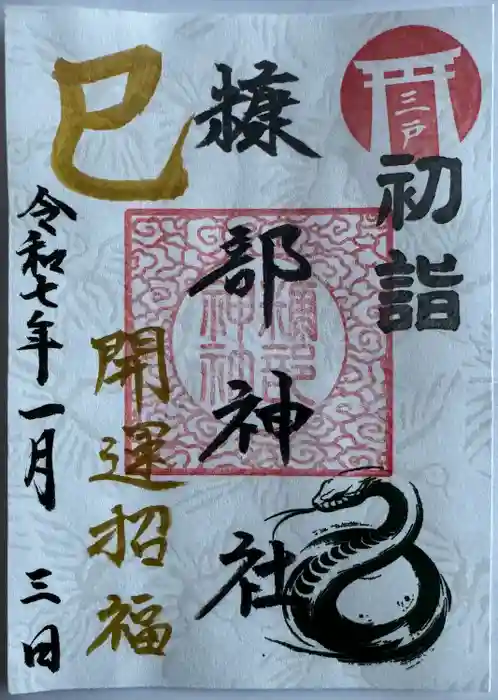 三戸
初詣
糠部神社
糠部神社
巳
開運招福
令和七年一月三日